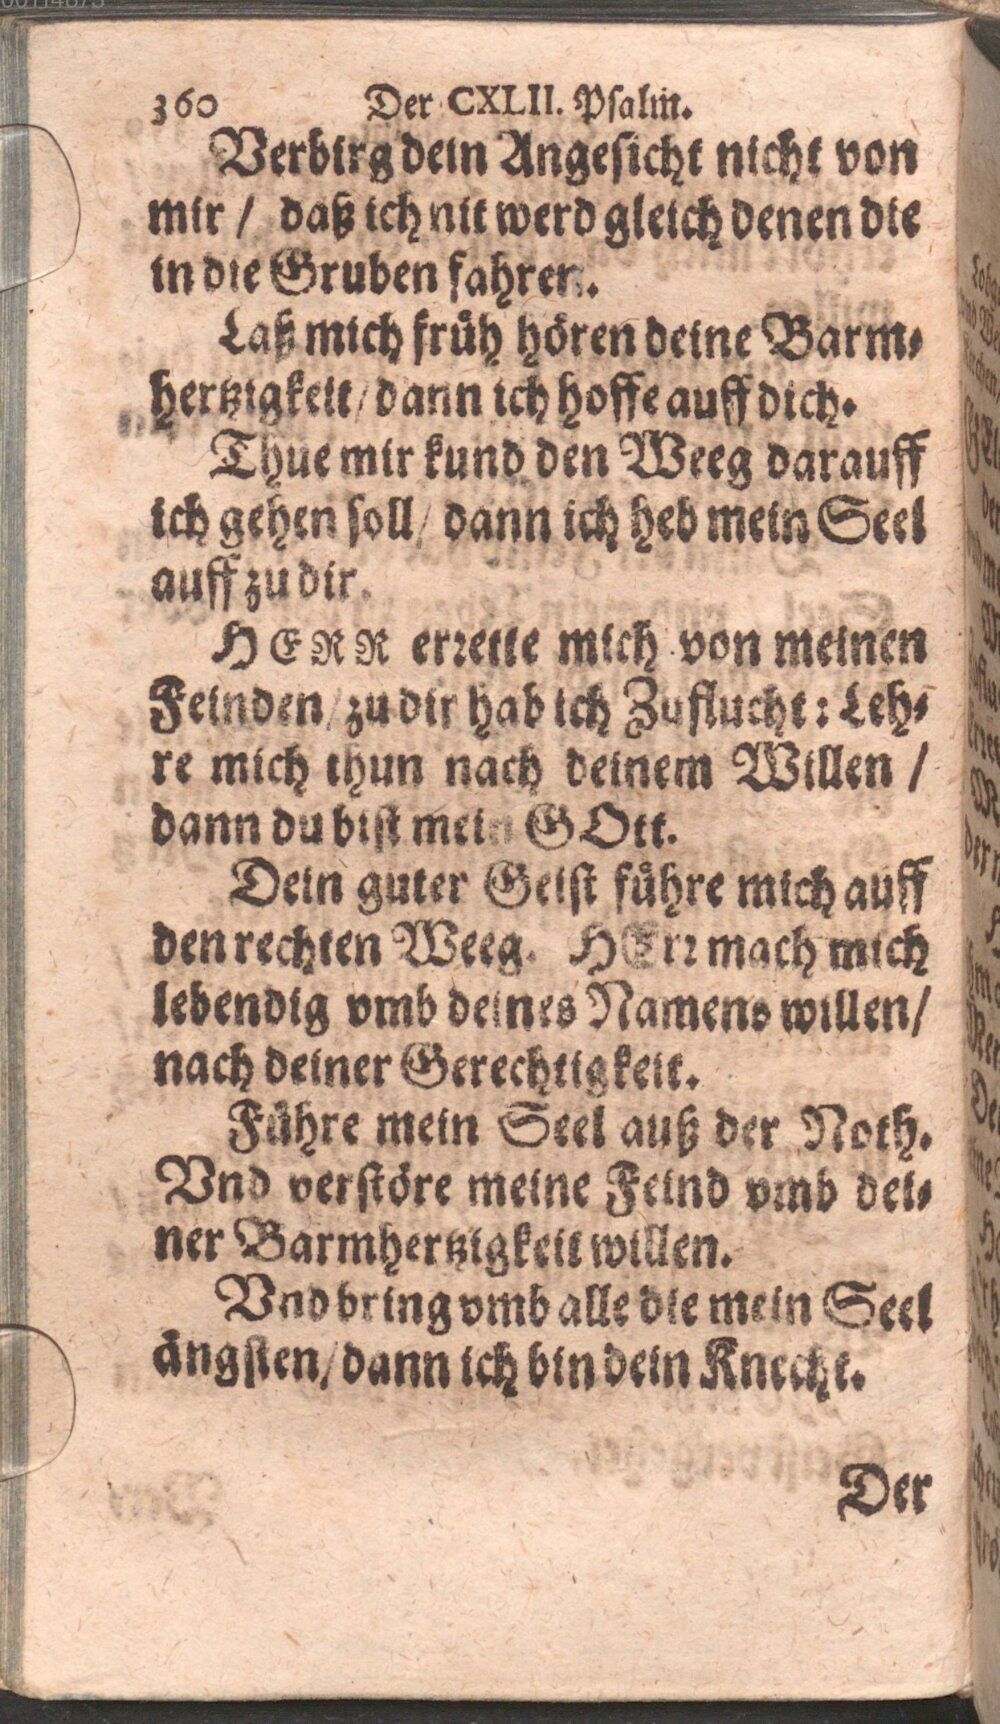 360 Der CXLII. Psalm.
Verbirg dein Angesicht nicht von
mir / daß ich nit werd gleich denen die
in die Gruben fahren.
Laß mich früh hören deine Barm-
hertzigkeit / dann ich hoffe auff dich.
Thue mir kund den Weeg darauff
ich gehen soll / dann ich heb mein Seel
auff zu dir.
HERR errette mich von meinen
Feinden / zu dir hab ich Zuflucht: Leh-
re mich thun nach deinem Willen /
dann du bist mein GOtt.
Dein guter Geist führe mich auff
den rechten Weeg. HErr mach mich
lebendig vmb deines Namens willen /
nach deiner Gerechtigkeit.
Führe mein Seel auß der Noth.
Vnd verstöre meine Feind vmb dei-
ner Barmhertzigkeit willen.
Vnd bring vmb alle die mein Seel
ängsten / dann ich bin dein Knecht.
Der